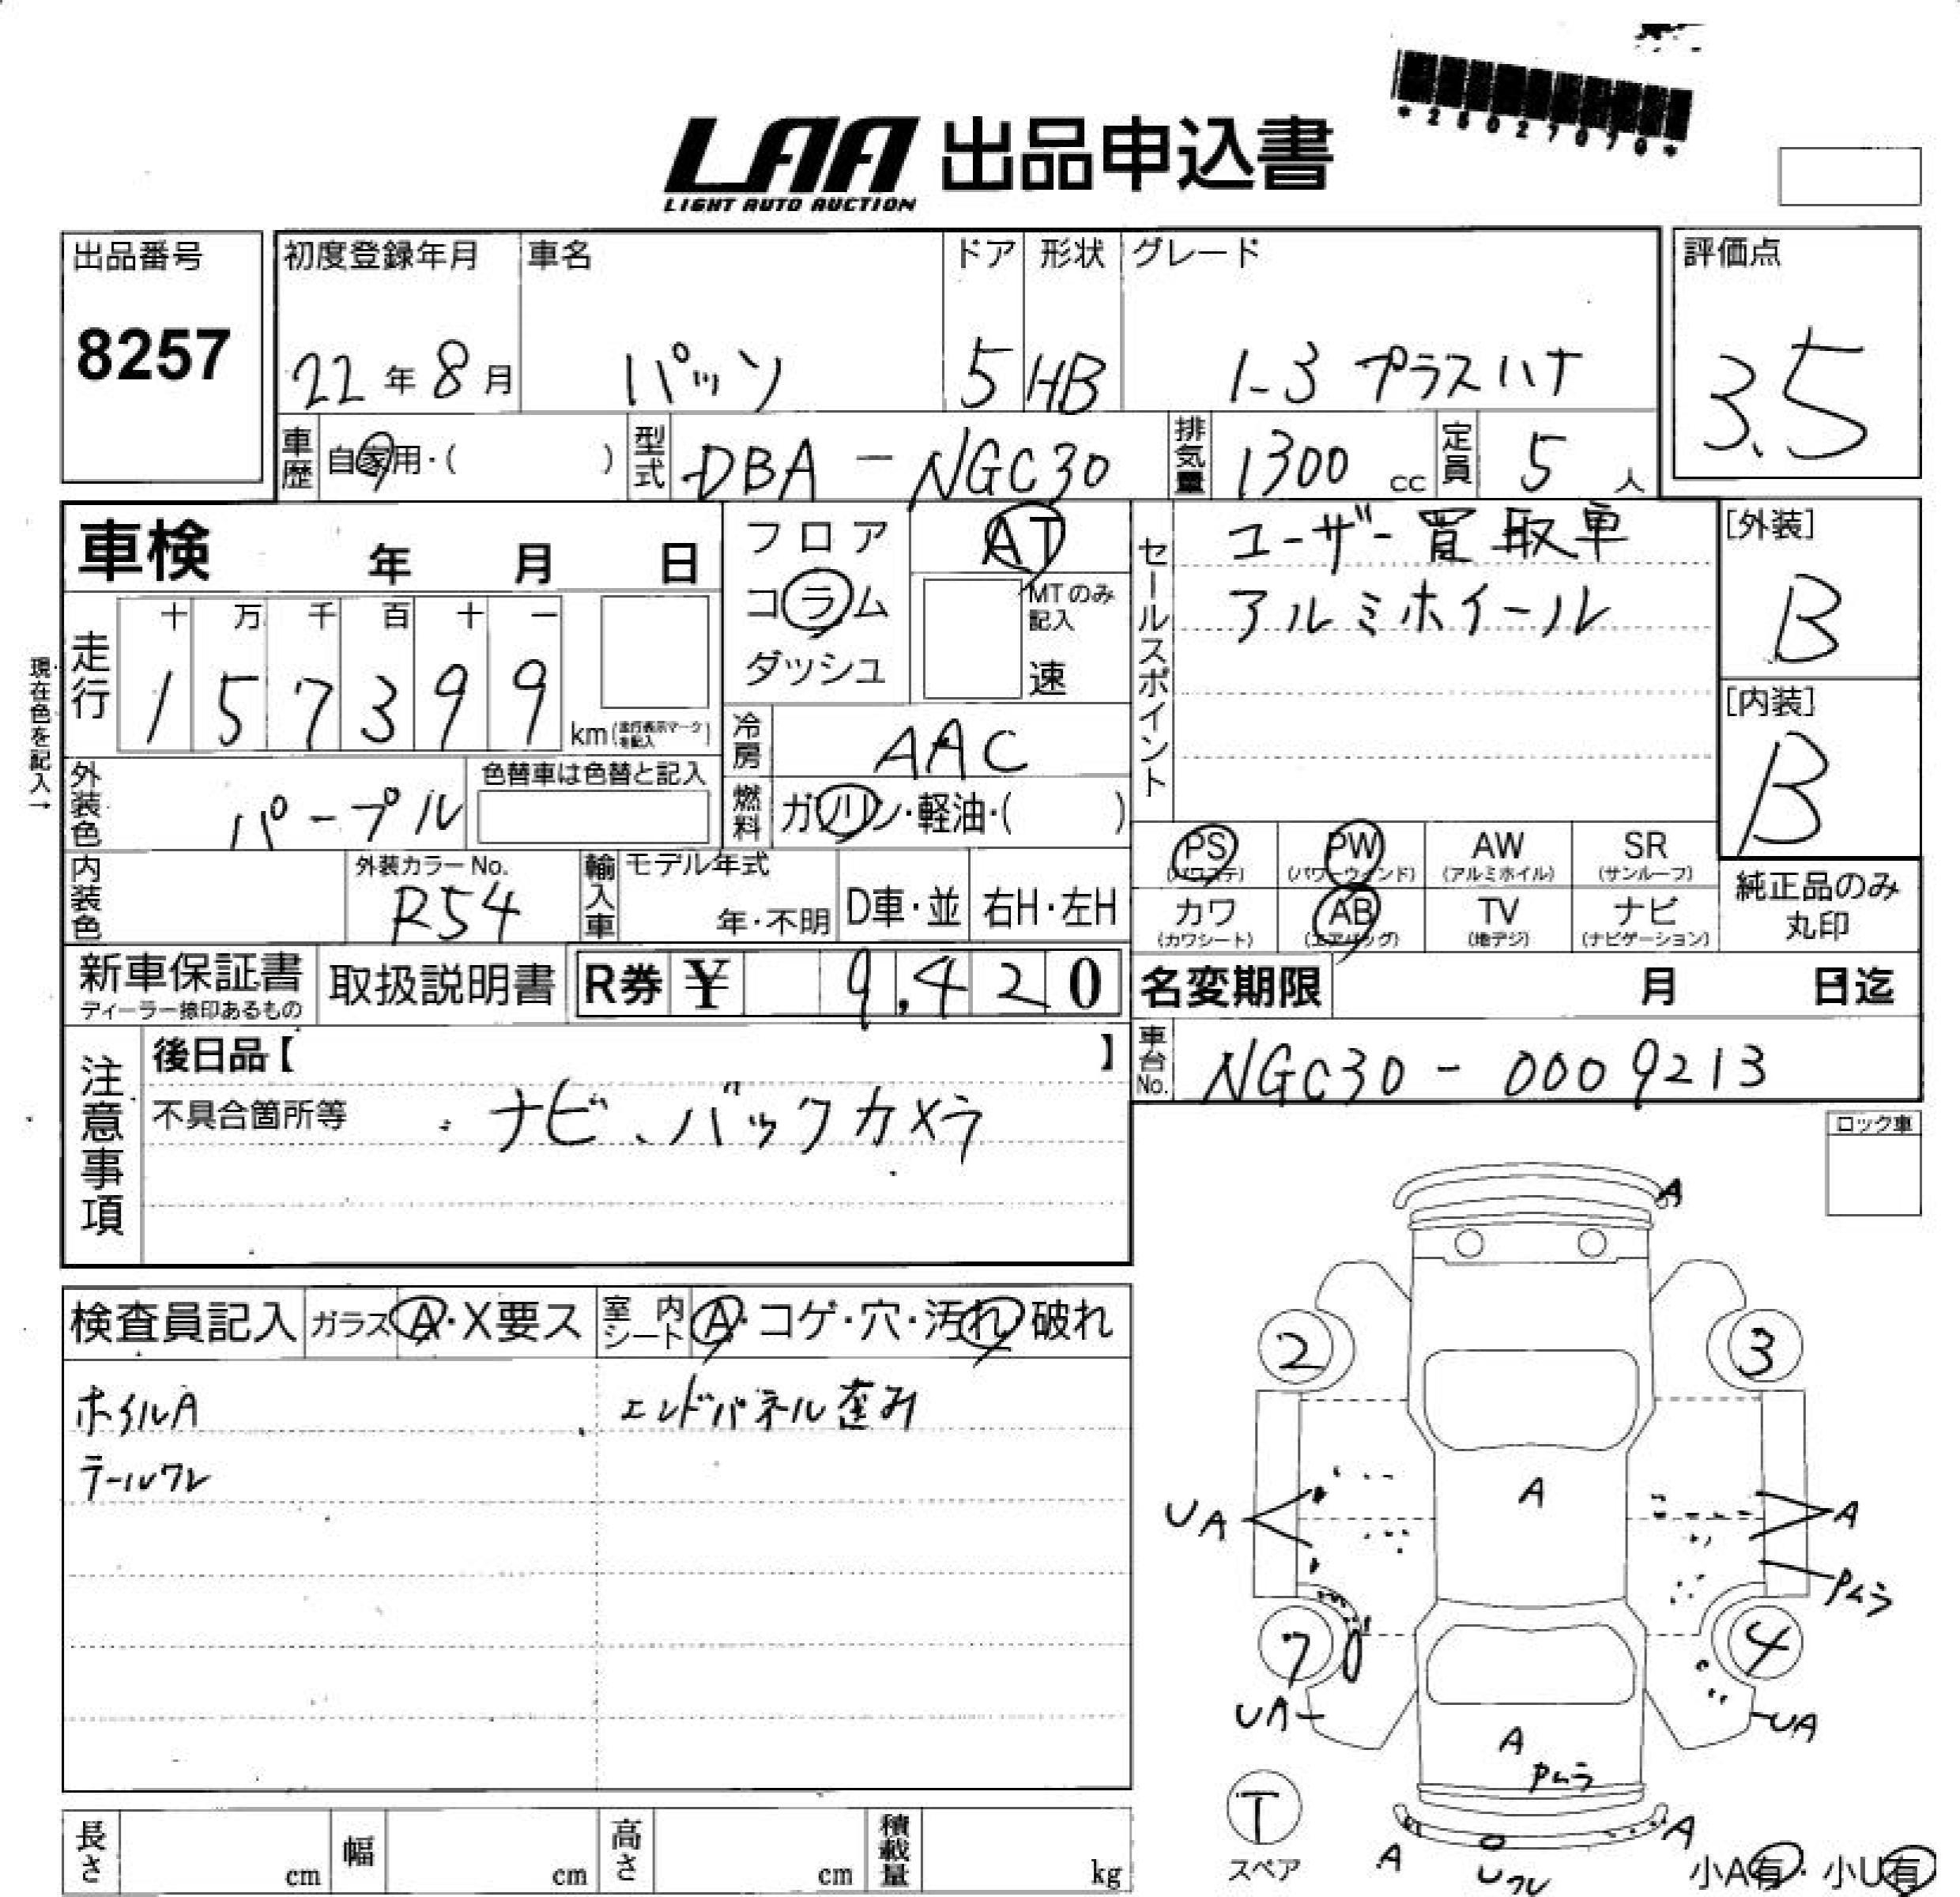 *26027070*
LAA 出品申込書
LIGHT AUTO AUCTION
出品番号
8257
初度登録年月
22年8月
車名
パッソ
ドア
5
形状
HB
グレード
1-3 プラスハナ
評価点
3.5
車歴
自家用・( )
型式
DBA-NGC30
排気量
1300cc
定員
5人
車検 年 月 日
フロア
コラム
ダッシュ
AT
MTのみ
記入
速
セールスポイント
ユーザー買取車
アルミホイール
[外装]
B
[内装]
B
現在色を記入→
走行
十 万 千 百 十 一
1 5 7 3 9 9
km(走行表示マークを記入)
冷房
AAC
外装色
パープル
色替車は色替と記入
燃料
ガソリン・軽油・( )
PS (パワステ)
PW (パワーウィンド)
AW (アルミホイル)
SR (サンルーフ)
カワ (カワシート)
AB (エアバッグ)
TV (地デジ)
ナビ (ナビゲーション)
純正品のみ
丸印
内装色
外装カラーNo.
R54
輸入車
モデル年式
年・不明
D車・並
右H・左H
新車保証書
ディーラー捺印あるもの
取扱説明書
R券 ¥ 9,420
名変期限 月 日迄
車台No.
NGC30-0009213
注意事項
後日品【 】
不具合箇所等
ナビ、バックカメラ
ロック車
検査員記入
ガラス A・X要ス
室内シート A・コゲ・穴・汚れ・破れ
ホイルA
エンドパネル歪み
テールワレ
A
2
3
A
UA
A
Pムラ
7
4
UA
UA
A
Pムラ
T
スペア
A
A
Uワレ
小A有・小U有
長さ cm
幅 cm
高さ cm
積載量 kg